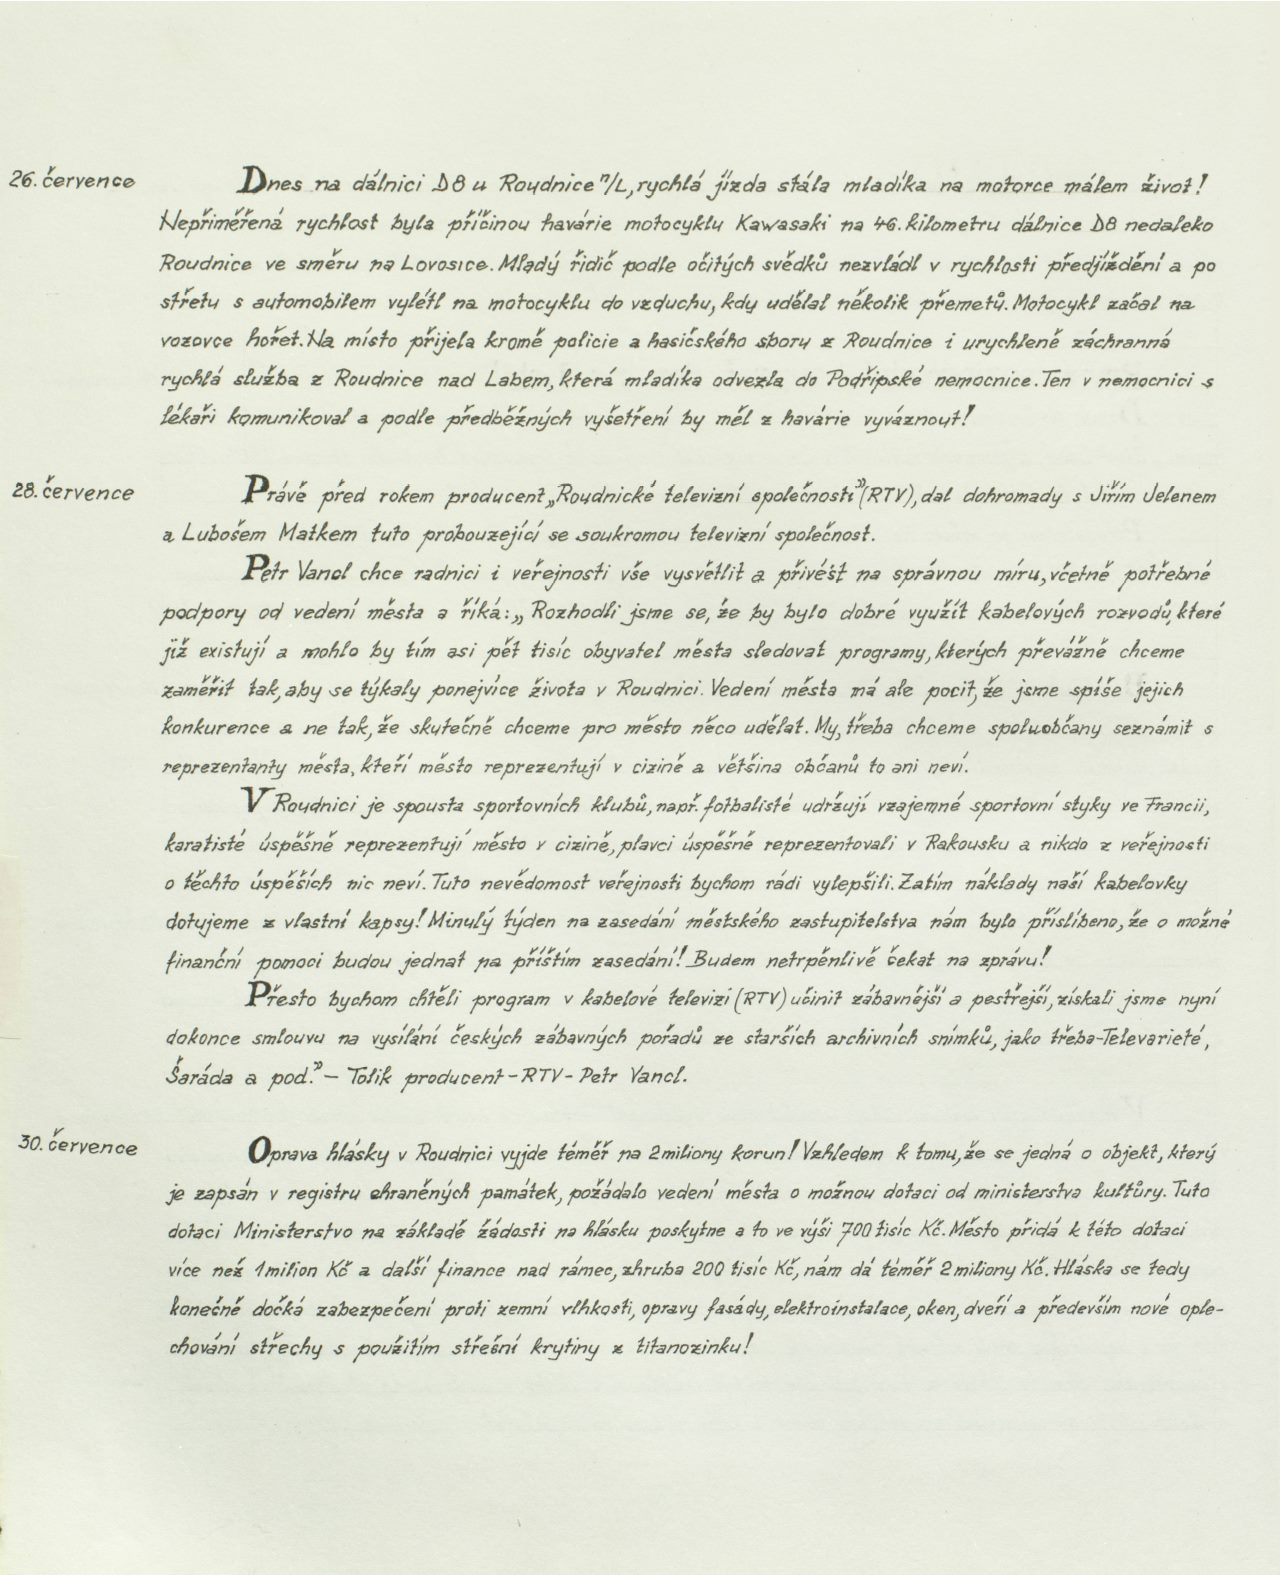 26. července Dnes na dálnici D8 u Roudnice n/L, rychlá jízda stála mladíka na motorce málem život!
Nepřiměřená rychlost byla příčinou havárie motocyklu Kawasaki na 46. kilometru dálnice D8 nedaleko
Roudnice ve směru na Lovosice. Mladý řidič podle očitých svědků nezvládl v rychlosti předjíždění a po
střetu s automobilem vylétl na motocyklu do vzduchu, kdy udělal několik přemetů. Motocykl začal na
vozovce hořet. Na místo přijela kromě policie a hasičského sboru z Roudnice i urychleně záchranná
rychlá služba z Roudnice nad Labem, která mladíka odvezla do Podřipské nemocnice. Ten v nemocnici s
lékaři komunikoval a podle předběžných vyšetření by měl z havárie vyváznout!
28. července Právě před rokem producent „Roudnické televizní společnosti” (RTV), dal dohromady s Jiřím Jelenem
a Lubošem Matkem tuto probouzející se soukromou televizní společnost.
Petr Vancl chce radnici i veřejnosti vše vysvětlit a přivést na správnou míru, včetně potřebné
podpory od vedení města a říká: „Rozhodli jsme se, že by bylo dobré využít kabelových rozvodů, které
již existují a mohlo by tím asi pět tisíc obyvatel města sledovat programy, kterých převážně chceme
zaměřit tak, aby se týkaly ponejvíce života v Roudnici. Vedení města má ale pocit, že jsme spíše jejich
konkurence a ne tak, že skutečně chceme pro město něco udělat. My, třeba chceme spoluobčany seznámit s
reprezentanty města, kteří město reprezentují v cizině a většina občanů to ani neví.
V Roudnici je spousta sportovních klubů, např. fotbalisté udržují vzajemné sportovní styky ve Francii,
karatisté úspěšně reprezentují město v cizině, plavci úspěšně reprezentovali v Rakousku a nikdo z veřejnosti
o těchto úspěších nic neví. Tuto nevědomost veřejnosti bychom rádi vylepšili. Zatím náklady naší kabelovky
dotujeme z vlastní kapsy! Minulý týden na zasedání městského zastupitelstva nám bylo příslíbeno, že o možné
finanční pomoci budou jednat na příštím zasedání! Budem netrpěnlivě čekat na zprávu!
Přesto bychom chtěli program v kabelové televizi (RTV) učinit zábavnější a pestřejší, získali jsme nyní
dokonce smlouvu na vysílání českých zábavných pořadů ze starších archivních snímků, jako třeba-Televarieté,
Šaráda a pod.” – Tolik producent – RTV – Petr Vancl.
30. července Oprava hlásky v Roudnici vyjde téměř na 2 miliony korun! Vzhledem k tomu, že se jedná o objekt, který
je zapsán v registru chraněných památek, požádalo vedení města o možnou dotaci od ministerstva kultůry. Tuto
dotaci Ministerstvo na základě žádosti na hlásku poskytne a to ve výši 700 tisíc Kč. Město přidá k této dotaci
více než 1 milion Kč a další finance nad rámec, zhruba 200 tisíc Kč, nám dá téměř 2 miliony Kč. Hláska se tedy
konečně dočká zabezpečení proti zemní vlhkosti, opravy fasády, elektroinstalace, oken, dveří a především nové ople-
chování střechy s použitím střešní krytiny z titanozinku!